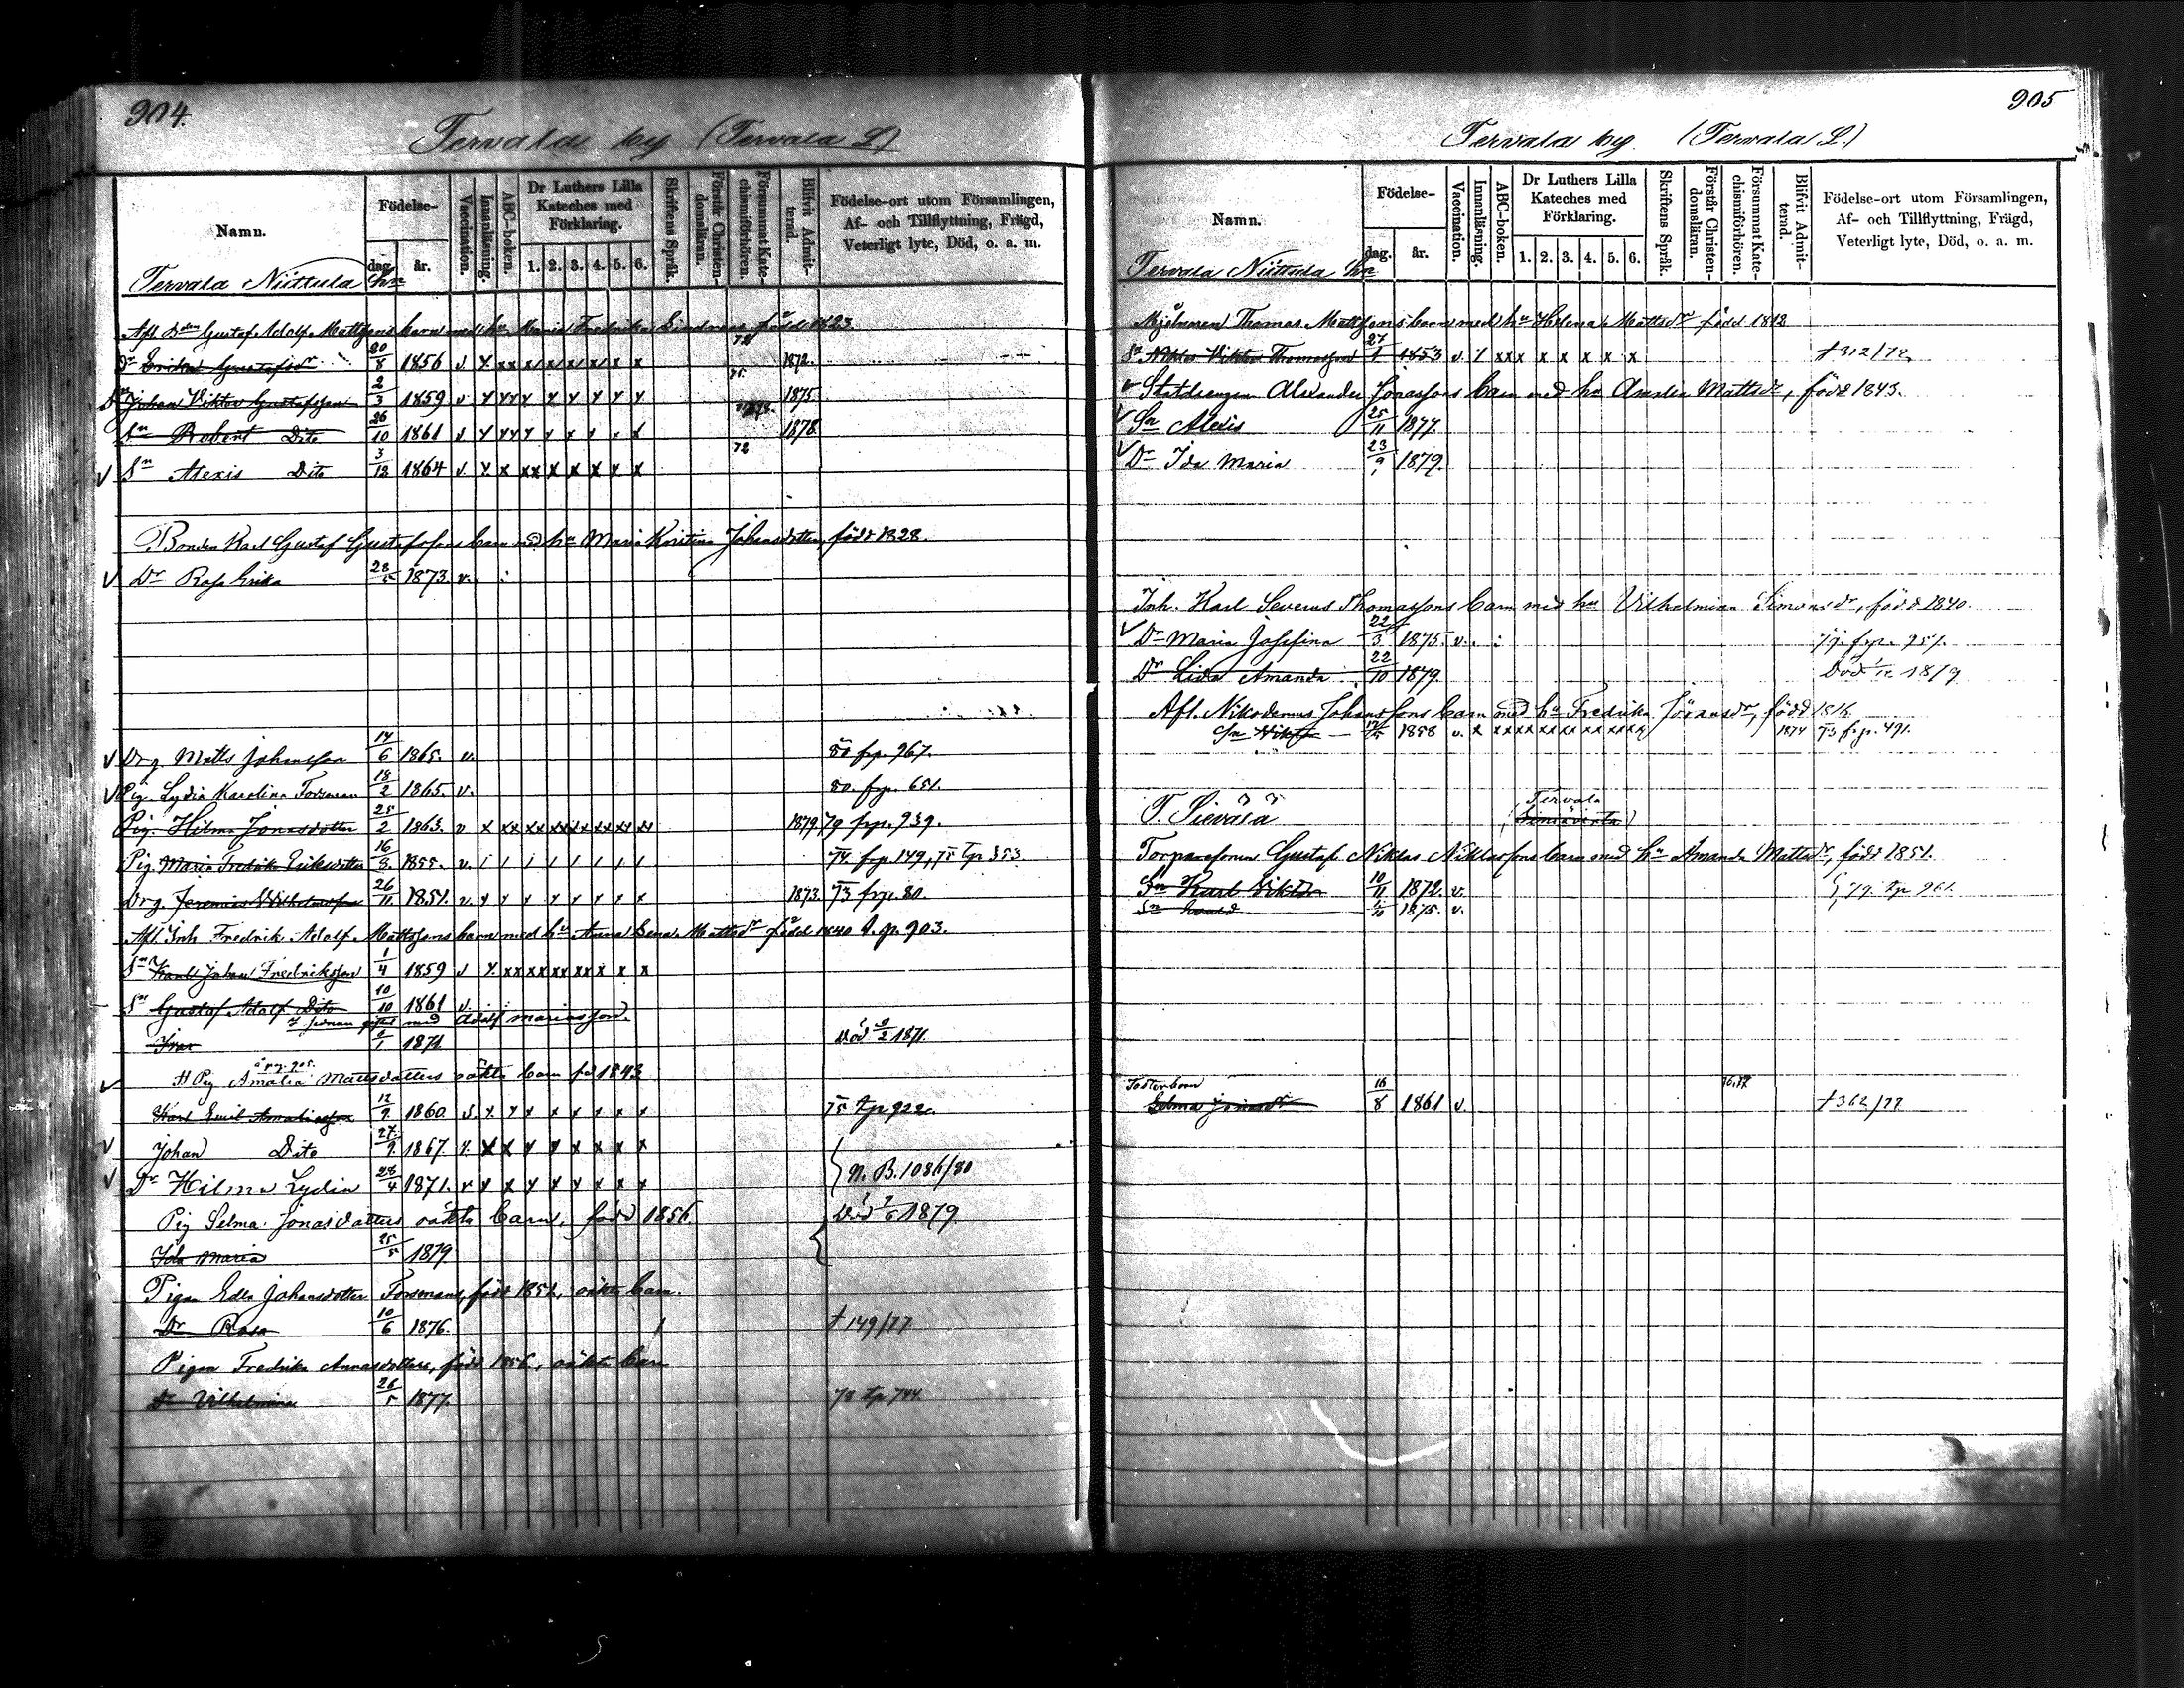 904.
Tervala by (Tervala L)
Namn.
Födelse-
dag.
år.
Vaccination.
Innanläsning.
ABC-boken.
Dr Luthers Lilla Kateches med Förklaring.
1. 2. 3. 4. 5. 6.
Skriftens Språk.
Förstår Christen-domsläran.
Försummat Kate-chismiförhören.
Blifvit Admit-terad.
Födelse-ort utom Församlingen,
Af- och Tillflyttning, Frägd,
Veterligt lyte, Död, o. a. m.
Tervala Niittula hn
Afl. Gustaf Adolf Mattssons barn med hu Maria Fredrika Lindroos född 1823
Dr Erika Gustafsdr 20/8 1856 v x xx x x x x x x 72 1872.
Sn Johan Viktor Gustafsson 2/3 1859 v x xx x x x x x x 75 1875.
Sn Robert Dito 26/10 1861 v x xx x x x x x x 1878.
v Sn Alexis Dito 3/12 1864 v x x xx x x x x x 72
Bonden Karl Gustaf Gustafssons barn med hu Maria Kristina Johansdotter, född 1828.
v Dr Rosa Erika 28/5 1873. v.
v Drg Matts Johansson 14/6 1865. v. 80 frp. 967.
v Pig. Lydia Karolina Forsman 18/2 1865. v. 80. frp. 651.
Pig. Hilma Jonasdotter 25/2 1863. v x xx xx xx x x xx xx 1879 79 frp. 939.
Pig. Maria Fredrika Eriksdotter 16/3 1855. v. 74 frp 149, 75 tp 353.
Drg. Jeremias Vilhelmsson 26/11 1851. v. x x x x x x x x 1873. 73 frp. 80.
Afl. Inh Fredrik Adolf Mattssons barn med hu Anna Lena Mattsdr född 1840 s. p. 903.
Sn Frans Johan Fredriksson 1/4 1859 v x. xx xx xx xx x x x
Sn Gustaf Adolf Dito 10/10 1861 v.
gifted med Adolf mariasson.
Ivar /1 1871. Död /2 1871.
å pg. 905.
Pig Amalia Mattsdotters oäkta barn fd 1843
Karl Emil Amaliasson 12/9. 1860. v. x. x x x x x x x 75 tp 922.
v Johan Dito 27/9. 1867. v. x x x x x x x x
v Dr Hilma Lydia 28/4 1871. v x x x x x x x x N. B. 1086/80
Pig Selma Jonasdotters oäkta barn, född 1856
Ida Maria 25/5 1879 Död /6 1879
Pigan Edla Johansdotter Forsmans, född 1852, oäkta barn.
Dr Rosa 10/6 1876. † 149/77
Pigan Fredrika Annasdotters, född 1856, oäkta barn
Dr Vilhelmina 26/5 1877. 78 tp 744.
905
Tervala by (Tervala L.)
Namn.
Födelse-
dag.
år.
Vaccination.
Innanläsning.
ABC-boken.
Dr Luthers Lilla Kateches med Förklaring.
1. 2. 3. 4. 5. 6.
Skriftens Språk.
Förstår Christen-domsläran.
Försummat Kate-chismiförhören.
Blifvit Admit-terad.
Födelse-ort utom Församlingen,
Af- och Tillflyttning, Frägd,
Veterligt lyte, Död, o. a. m.
Tervala Niittula hn
Mjölnaren Thomas Mattssons barn med hu Helena Mattsdr född 1812
Sn Niklas Viktor Thomasson 27/1 1853 v. x xxx x x x x x † 312/72
v Statdrengen Alexander Jonassons barn med hu Amalia Mattsdr, född 1843.
v Sn Alexis 25/11 1877.
v Dr Ida Maria 23/9 1879.
Inh. Karl Severus Thomassons barn med hu Vilhelmina Simonsdr, född 1840.
v Dr Maria Josefina 22/3 1875. v. 79. frp. 951.
Dr Lida Amanda 22/10 1879. Död /12 1879
Afl. Nikodemus Johanssons barn med hu Fredrika Göransdr, född 1816
Sn Viktor 1858 v. x xxxx xx xx xx xx 1874 73 frp. 491.
T. Sievälä (Tervala Simiavirta)
Torparsonen Gustaf Niklas Niklassons barn med hu Amanda Mattsdr, född 1851.
Sn Karl Viktor 10/11 1872. v. 79. tp 961.
Sn Evald /10 1875. v.
Fosterbarn
Selma Jonasdr 16/8 1861 v. 76.77 † 362/77